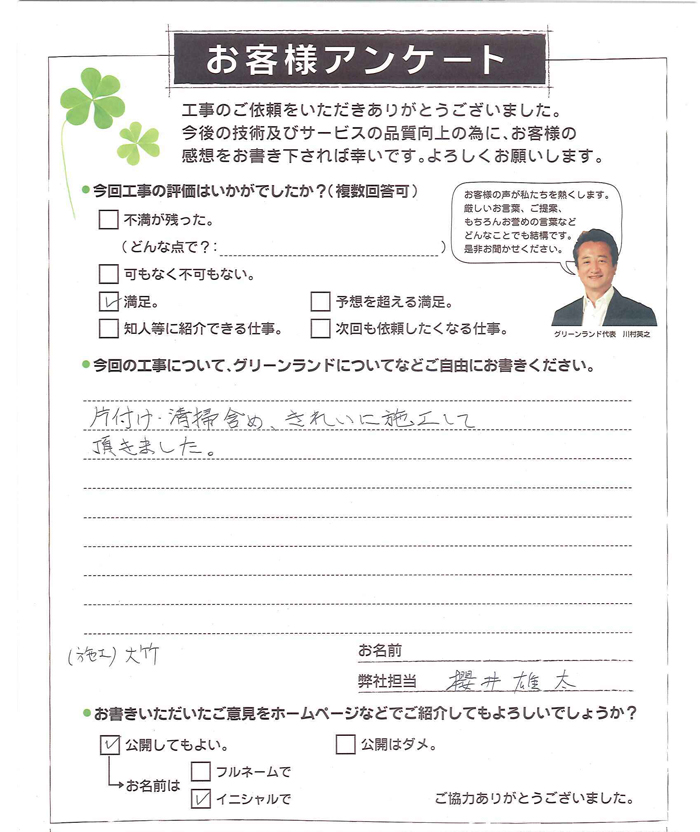 お客様アンケート
工事のご依頼をいただきありがとうございました。
今後の技術及びサービスの品質向上の為に、お客様の
感想をお書き下されば幸いです。よろしくお願いします。
●今回工事の評価はいかがでしたか？（複数回答可）
不満が残った。
（どんな点で？：　　　）
可もなく不可もない。
満足。
予想を超える満足。
知人等に紹介できる仕事。
次回も依頼したくなる仕事。
お客様の声が私たちを熱くします。
厳しいお言葉、ご提案、
もちろんお誉めの言葉など
どんなことでも結構です。
是非お聞かせください。
グリーンランド代表　川村英之
●今回の工事について、グリーンランドについてなどご自由にお書きください。
片付け・清掃含め、きれいに施工して
頂きました。
(施工) 大竹
お名前
弊社担当　櫻井 雄太
●お書きいただいたご意見をホームページなどでご紹介してもよろしいでしょうか？
公開してもよい。
公開はダメ。
お名前は
フルネームで
イニシャルで
ご協力ありがとうございました。